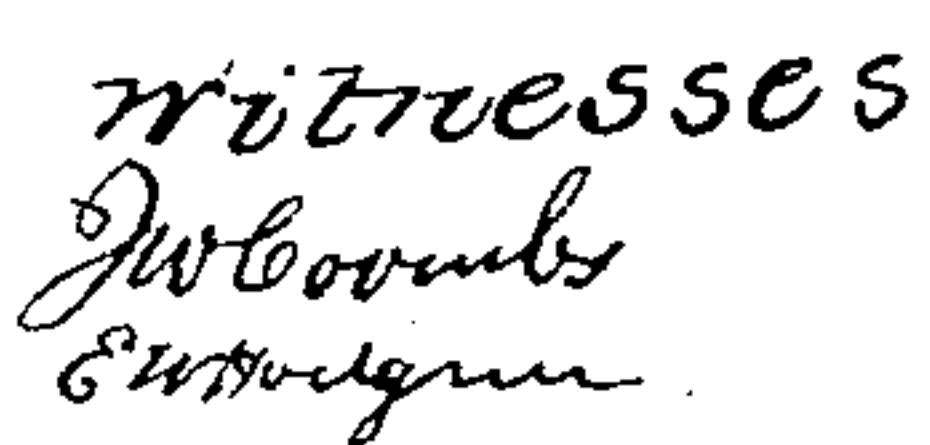 Witnesses
J W Coombs
E W Hodgson